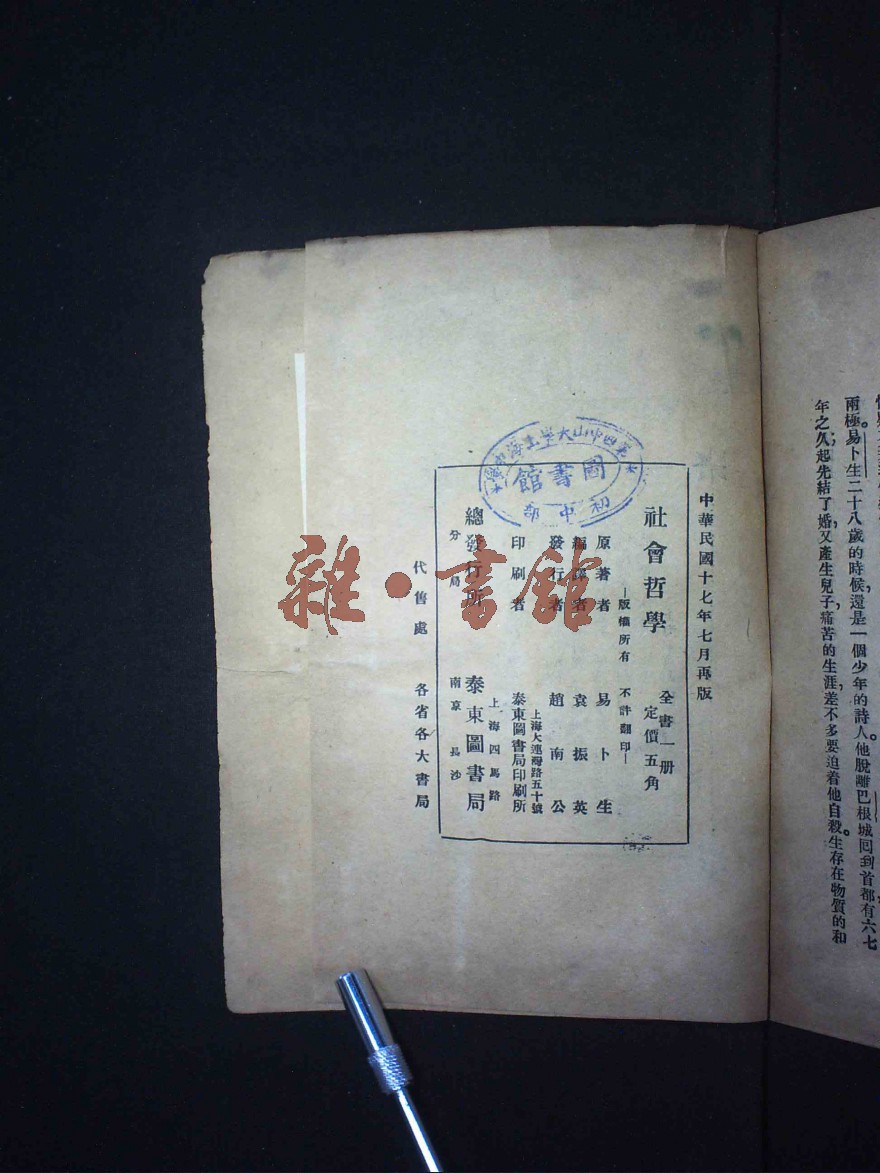 兩極。易卜生二十八歲的時候，還是一個少年的詩人。他脫離巴根城，囘到首都有六七
年之久，起先結了婚，又產生兒子，痛苦的生涯，差不多要迫着他自殺。生存在物質的和
中華民國十七年七月再版
社會哲學
全書一册
定價五角
—版權所有 不許翻印—
原著者 易卜生
編譯者 袁振英
發行者 趙南公
上海大連灣路五十號
印刷者 泰東圖書局印刷所
上海四馬路
總發行所 泰東圖書局
分局 南京 長沙
代售處 各省各大書局
圖書館
初中部
雜·書館